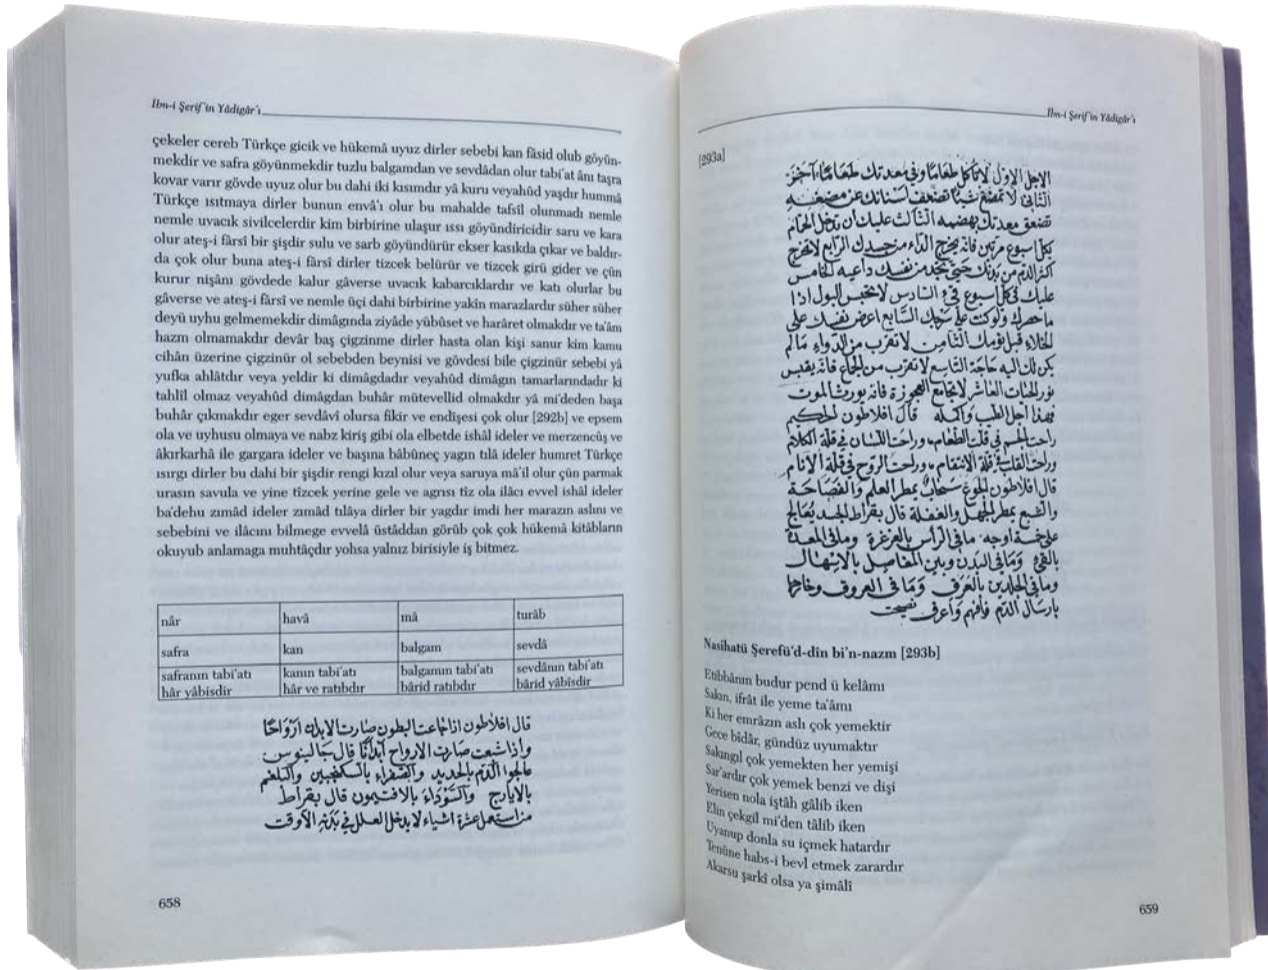 İbn-i Şerif'in Yâdigâr'ı
çekeler cereb Türkçe gicik ve hükemâ uyuz dirler sebebi kan fâsid olub göyün-
mekdir ve safra göyünmekdir tuzlu balgamdan ve sevdâdan olur tabi'at ânı taşra
kovar varır gövde uyuz olur bu dahi iki kısımdır yâ kuru veyahûd yaşdır hummâ
Türkçe ısıtmaya dirler bunun envâ'ı olur bu mahalde tafsîl olunmadı nemle
nemle uvacık sivilcelerdir kim birbirine ulaşur ıssı göyündiricidir saru ve kara
olur ateş-i fârsî bir şişdir sulu ve sarb göyündürür ekser kasıkda çıkar ve baldır-
da çok olur buna ateş-i fârsî dirler tizcek belürür ve tizcek girü gider ve çün
kurur nişânı gövdede kalur gâverse uvacık kabarcıklardır ve katı olurlar bu
gâverse ve ateş-i fârsî ve nemle üçi dahi birbirine yakîn marazlardır süher süher
deyü uyhu gelmemekdir dimâgında ziyâde yübûset ve harâret olmakdır ve ta'âm
hazm olmamakdır devâr baş çigzinme dirler hasta olan kişi sanur kim kamu
cihân üzerine çigzinür ol sebebden beynisi ve gövdesi bile çigzinür sebebi yâ
yufka ahlâtdır veya yeldir ki dimâgdadır veyahûd dimâgın tamarlarındadır ki
tahlîl olmaz veyahûd dimâgdan buhâr mütevellid olmakdır yâ mi'deden başa
buhâr çıkmakdır eger sevdâvî olursa fikir ve endişesi çok olur [292b] ve epsem
ola ve uyhusu olmaya ve nabz kiriş gibi ola elbetde ishâl ideler ve merzencûş ve
âkırkarhâ ile gargara ideler ve başına bâbûneç yagın tılâ ideler humret Türkçe
ısırgı dirler bu dahi bir şişdir rengi kızıl olur veya saruya mâ'il olur çün parmak
urasın savula ve yine tîzcek yerine gele ve agrısı tîz ola ilâcı evvel ishâl ideler
ba'dehu zımâd ideler zımâd tılâya dirler bir yagdır imdi her marazın aslını ve
sebebini ve ilâcını bilmege evvelâ üstâddan görüb çok çok hükemâ kitâbların
okuyub anlamaga muhtâçdır yohsa yalnız birisiyle iş bitmez.
nâr havâ mâ turâb
safra kan balgam sevdâ
safranın tabi'atı kanın tabi'atı balgamın tabi'atı sevdânın tabi'atı
hâr yâbisdir hâr ve ratıbdır bârid ratıbdır bârid yâbisdir
قال افلاطون اذا جاعت البطون صارت الابدان ارواحًا
واذا شبعت صارت الارواح ابدانًا قال جالينوس
عالجوا الدّم بالحديد والصّفراء بالسكنجبين والبلغم
بالايارج والسّوداء بالافتيمون قال بقراط
من استعمل عشرة اشياء لا يدخل العلل في بدنه الا وقت
658
İbn-i Şerif'in Yâdigâr'ı
[293a]
الاجل الاوّل لا تاكل طعامًا وفي معدتك طعامًا آخر
الثاني لا تمضغ شيئا تضعف اسنانك عن مضغه
تضعف معدتك بهضمه الثالث عليك ان تدخل الحمّام
بكل اسبوع مرتين فانه يخرج الدّاء من جسدك الرابع لا تخرج
اكثر الدّم من بدنك حتى تجد من نفسك داعيه الخامس
عليك في كل اسبوع قئ السّادس لا تحبس البول اذا
ما حصرك ولو كنت على سرجك السّابع اعرض نفسك على
الخلاء قبل نومك الثّامن لا تقرب من الدّواء مالم
يكن لك اليه حاجة التّاسع لا تقرب من الجماع فانه يقبس
نور الحيات العاشر لا تجامع العجوزة فانه يورث الموت
فهذا اجل الطب واكمله قال افلاطون الحكيم
راحت الجسم في قلّت الطعام وراحت اللسان في قلّة الكلام
وراحت القلب في قلّة الانتقام وراحت الروح في قلّة الانام
قال افلاطون الجوع سحاب يمطر العلم والفصاحة
والشبع يمطر الجهل والغفلة قال بقراط الجسد يُعالج
على خمسة اوجه ما في الرأس بالغرغرة وما في المعدة
بالقئ وما في البدن وبين المفاصل بالاسهال
وما في الجلدين بالعرق وما في العروق وخارجها
بارسال الدّم فافهم واعرف نصيحت
Nasihatü Şerefü'd-dîn bi'n-nazm [293b]
Etıbbânın budur pend ü kelâmı
Sakın, ifrât ile yeme ta'âmı
Ki her emrâzın aslı çok yemektir
Gece bîdâr, gündüz uyumaktır
Sakıngıl çok yemekten her yemişi
Sar'ardır çok yemek benzi ve dişi
Yerisen nola iştâh gâlib iken
Elin çekgil mi'den tâlib iken
Uyanup donla su içmek hatardır
Tenüne habs-i bevl etmek zarardır
Akarsu şarkî olsa ya şimâlî
659